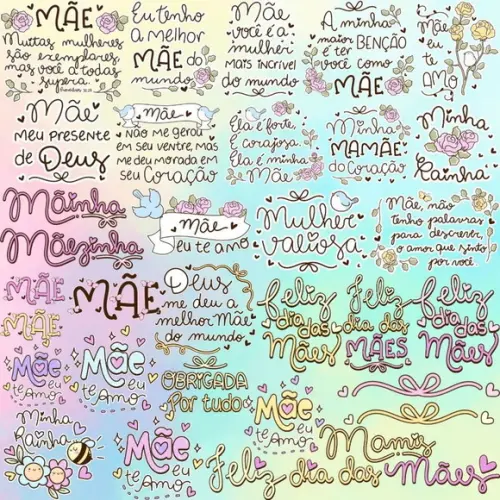 MÃE
Muitas mulheres
são exemplares,
mas você a todas
supera
Provérbios 31:29
Eu tenho
a melhor
MÃE do
mundo
Mãe
você é a
mulher
mais incrível
do mundo
A minha
maior BENÇÃO
é ter você
como
MÃE
Mãe
eu
te
AMO
Mãe
meu presente
de Deus
Mãe
não me gerou
em seu ventre, mas
me deu morada em
seu Coração
Ela é forte,
É corajosa.
Ela é minha
Mãe
Minha
MAMÃE
do Coração
Minha
Rainha
Mãinha
Mãezinha
Mãe
eu te amo
Mulher
valiosa
Mãe, não
tenho palavras
para descrever
o amor que sinto
por você
MÃE
MÃE
MÃE
Deus
me deu a
melhor Mãe
do mundo
Feliz
dia das
Mães
Feliz
dia das
MÃES
Feliz
dia das
Mães
Mãe
eu
te Amo
Mãe
eu
te Amo
OBRIGADA
Por tudo
Mãe
eu
te Amo
Minha
Rainha
Mãe
eu
te Amo
Mamis
Feliz dia das Mães